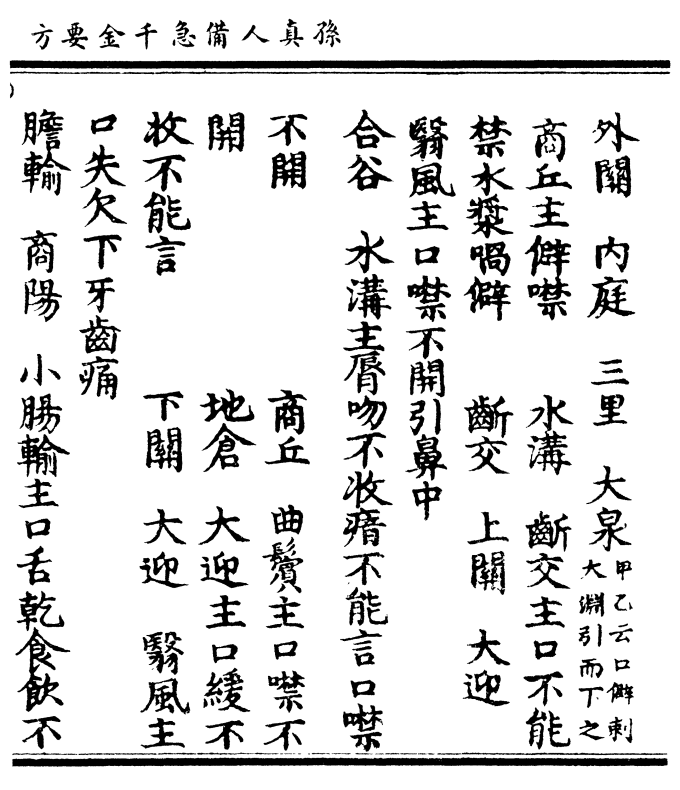 孫真人備急千金要方
外關 内庭 三里 大泉甲乙云口僻刺大淵引而下之
商丘主僻噤 水溝 齗交主口不能
禁水漿喎僻 齗交 上關 大迎
翳風主口噤不開引鼻中
合谷 水溝主脣吻不收瘖不能言口噤
不開 商丘 曲鬢主口噤不
開 地倉 大迎主口緩不
收不能言 下關 大迎 翳風主
口失欠下牙齒痛
膽輸 商陽 小腸輸主口舌乾食飲不